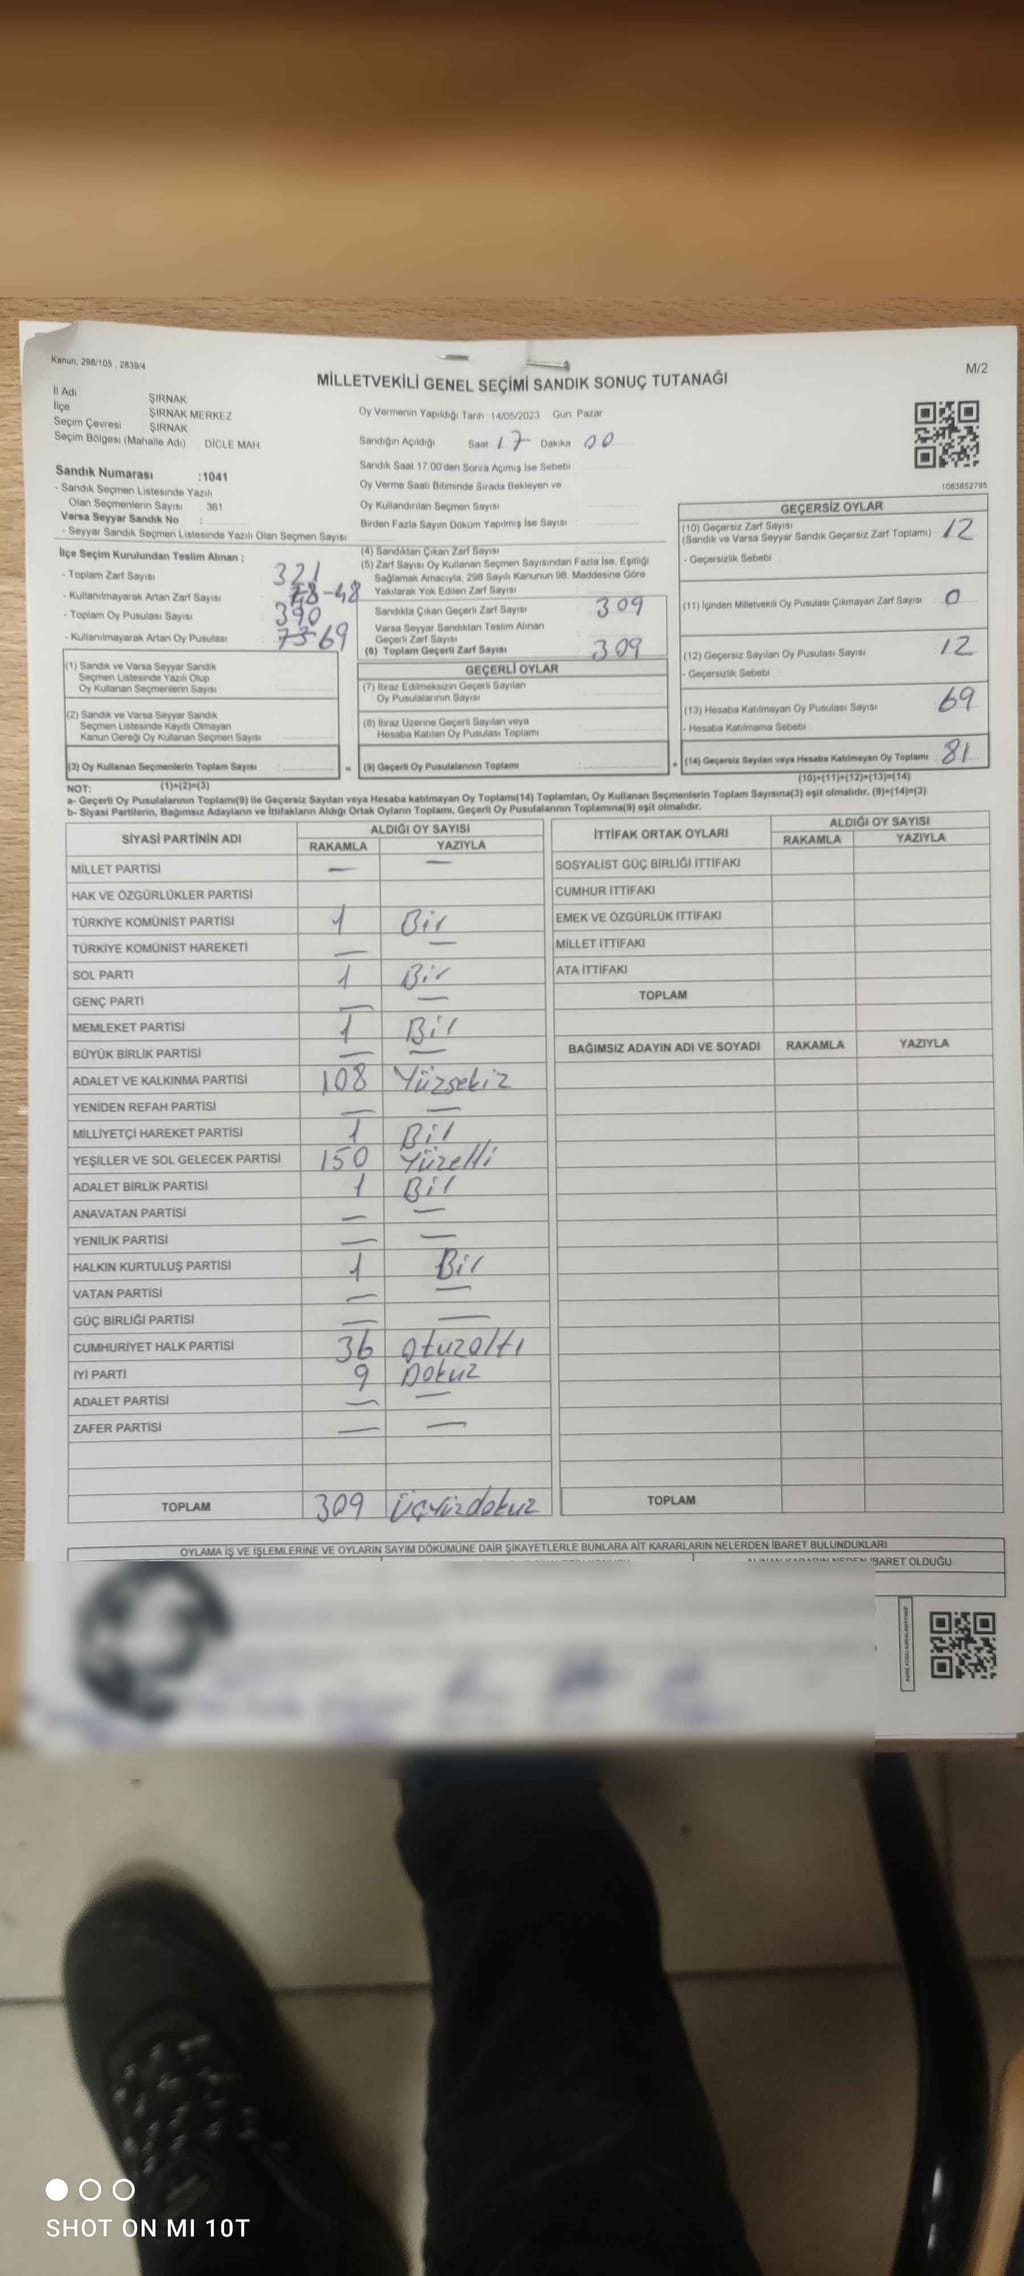 Kanun, 298/105 , 2839/4
M/2
MİLLETVEKİLİ GENEL SEÇİMİ SANDIK SONUÇ TUTANAĞI
İl Adı ŞIRNAK
İlçe ŞIRNAK MERKEZ
Seçim Çevresi ŞIRNAK
Seçim Bölgesi (Mahalle Adı) DİCLE MAH
Oy Vermenin Yapıldığı Tarih 14/05/2023 Gün Pazar
Sandığın Açıldığı Saat 17 Dakika 00
Sandık Saat 17:00'den Sonra Açımış İse Sebebi :
Oy Verme Saati Bitiminde Sırada Bekleyen ve
Oy Kullandırılan Seçmen Sayısı :
Birden Fazla Sayım Döküm Yapılmış İse Sayısı :
1083852795
Sandık Numarası :1041
- Sandık Seçmen Listesinde Yazılı
Olan Seçmenlerin Sayısı : 361
Varsa Seyyar Sandık No :
- Seyyar Sandık Seçmen Listesinde Yazılı Olan Seçmen Sayısı
İlçe Seçim Kurulundan Teslim Alınan ;
- Toplam Zarf Sayısı 321
- Kullanılmayarak Artan Zarf Sayısı 78-48
- Toplam Oy Pusulası Sayısı 390
- Kullanılmayarak Artan Oy Pusulası 73 69
(1) Sandık ve Varsa Seyyar Sandık
Seçmen Listesinde Yazılı Olup
Oy Kullanan Seçmenlerin Sayısı
(2) Sandık ve Varsa Seyyar Sandık
Seçmen Listesinde Kayıtlı Olmayan
Kanun Gereği Oy Kullanan Seçmen Sayısı
(3) Oy Kullanan Seçmenlerin Toplam Sayısı
(1)+(2)=(3)
(4) Sandıktan Çıkan Zarf Sayısı
(5) Zarf Sayısı Oy Kullanan Seçmen Sayısından Fazla İse, Eşitliği
Sağlamak Amacıyla, 298 Sayılı Kanunun 98. Maddesine Göre
Yakılarak Yok Edilen Zarf Sayısı
Sandıkta Çıkan Geçerli Zarf Sayısı : 309
Varsa Seyyar Sandıktan Teslim Alınan
Geçerli Zarf Sayısı
(6) Toplam Geçerli Zarf Sayısı : 309
GEÇERLİ OYLAR
(7) İtiraz Edilmeksizin Geçerli Sayılan
Oy Pusulalarının Sayısı
(8) İtiraz Üzerine Geçerli Sayılan veya
Hesaba Katılan Oy Pusulası Toplamı
= (9) Geçerli Oy Pusulalarının Toplamı
GEÇERSİZ OYLAR
(10) Geçersiz Zarf Sayısı
(Sandık ve Varsa Seyyar Sandık Geçersiz Zarf Toplamı) : 12
- Geçersizlik Sebebi
(11) İçinden Milletvekili Oy Pusulası Çıkmayan Zarf Sayısı : 0
(12) Geçersiz Sayılan Oy Pusulası Sayısı : 12
- Geçersizlik Sebebi
(13) Hesaba Katılmayan Oy Pusulası Sayısı : 69
- Hesaba Katılmama Sebebi
+ (14) Geçersiz Sayılan veya Hesaba Katılmayan Oy Toplamı : 81
(10)+(11)+(12)+(13)=(14)
NOT:
a- Geçerli Oy Pusulalarının Toplamı(9) ile Geçersiz Sayılan veya Hesaba katılmayan Oy Toplamı(14) Toplamları, Oy Kullanan Seçmenlerin Toplam Sayısına(3) eşit olmalıdır. (9)+(14)=(3)
b- Siyasi Partilerin, Bağımsız Adayların ve İttifakların Aldığı Ortak Oyların Toplamı, Geçerli Oy Pusulalarının Toplamına(9) eşit olmalıdır.
SİYASİ PARTİNİN ADI
ALDIĞI OY SAYISI
RAKAMLA YAZIYLA
MİLLET PARTİSİ — —
HAK VE ÖZGÜRLÜKLER PARTİSİ
TÜRKİYE KOMÜNİST PARTİSİ 1 Bir
TÜRKİYE KOMÜNİST HAREKETİ — —
SOL PARTİ 1 Bir
GENÇ PARTİ — —
MEMLEKET PARTİSİ 1 Bir
BÜYÜK BİRLİK PARTİSİ — —
ADALET VE KALKINMA PARTİSİ 108 Yüzsekiz
YENİDEN REFAH PARTİSİ — —
MİLLİYETÇİ HAREKET PARTİSİ 1 Bir
YEŞİLLER VE SOL GELECEK PARTİSİ 150 Yüzelli
ADALET BİRLİK PARTİSİ 1 Bir
ANAVATAN PARTİSİ — —
YENİLİK PARTİSİ — —
HALKIN KURTULUŞ PARTİSİ 1 Bir
VATAN PARTİSİ — —
GÜÇ BİRLİĞİ PARTİSİ — —
CUMHURİYET HALK PARTİSİ 36 otuzaltı
İYİ PARTİ 9 Dokuz
ADALET PARTİSİ — —
ZAFER PARTİSİ — —
TOPLAM 309 Üçyüzdokuz
İTTİFAK ORTAK OYLARI
ALDIĞI OY SAYISI
RAKAMLA YAZIYLA
SOSYALİST GÜÇ BİRLİĞİ İTTİFAKI
CUMHUR İTTİFAKI
EMEK VE ÖZGÜRLÜK İTTİFAKI
MİLLET İTTİFAKI
ATA İTTİFAKI
TOPLAM
BAĞIMSIZ ADAYIN ADI VE SOYADI RAKAMLA YAZIYLA
TOPLAM
OYLAMA İŞ VE İŞLEMLERİNE VE OYLARIN SAYIM DÖKÜMÜNE DAİR ŞİKAYETLERLE BUNLARA AİT KARARLARIN NELERDEN İBARET BULUNDUKLARI
İBARET OLDUĞU
SHOT ON MI 10T